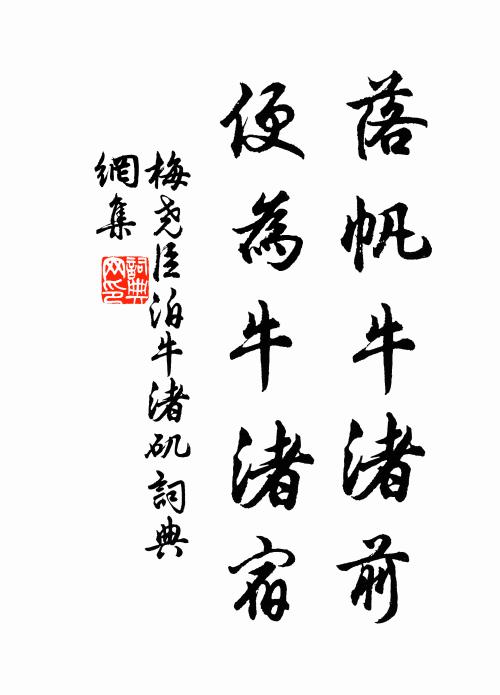 落帆牛渚前
便為牛渚宿
梅堯臣泊牛渚磯詞典
網集
詞典網印